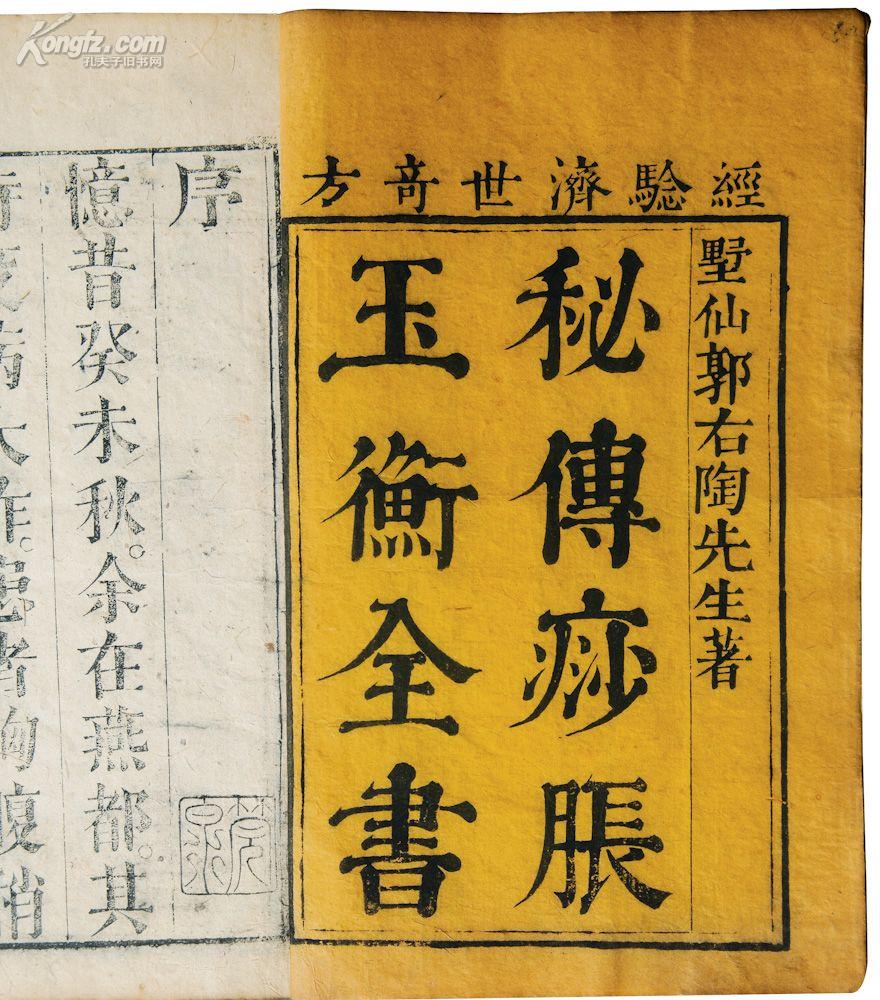 經驗濟世奇方
墅仙郭右陶先生著
秘傳痧脹
玉衡全書
序
憶昔癸未秋。余在燕都。其
大作。患者胸腹稍
Kongfz.com
孔夫子旧书网